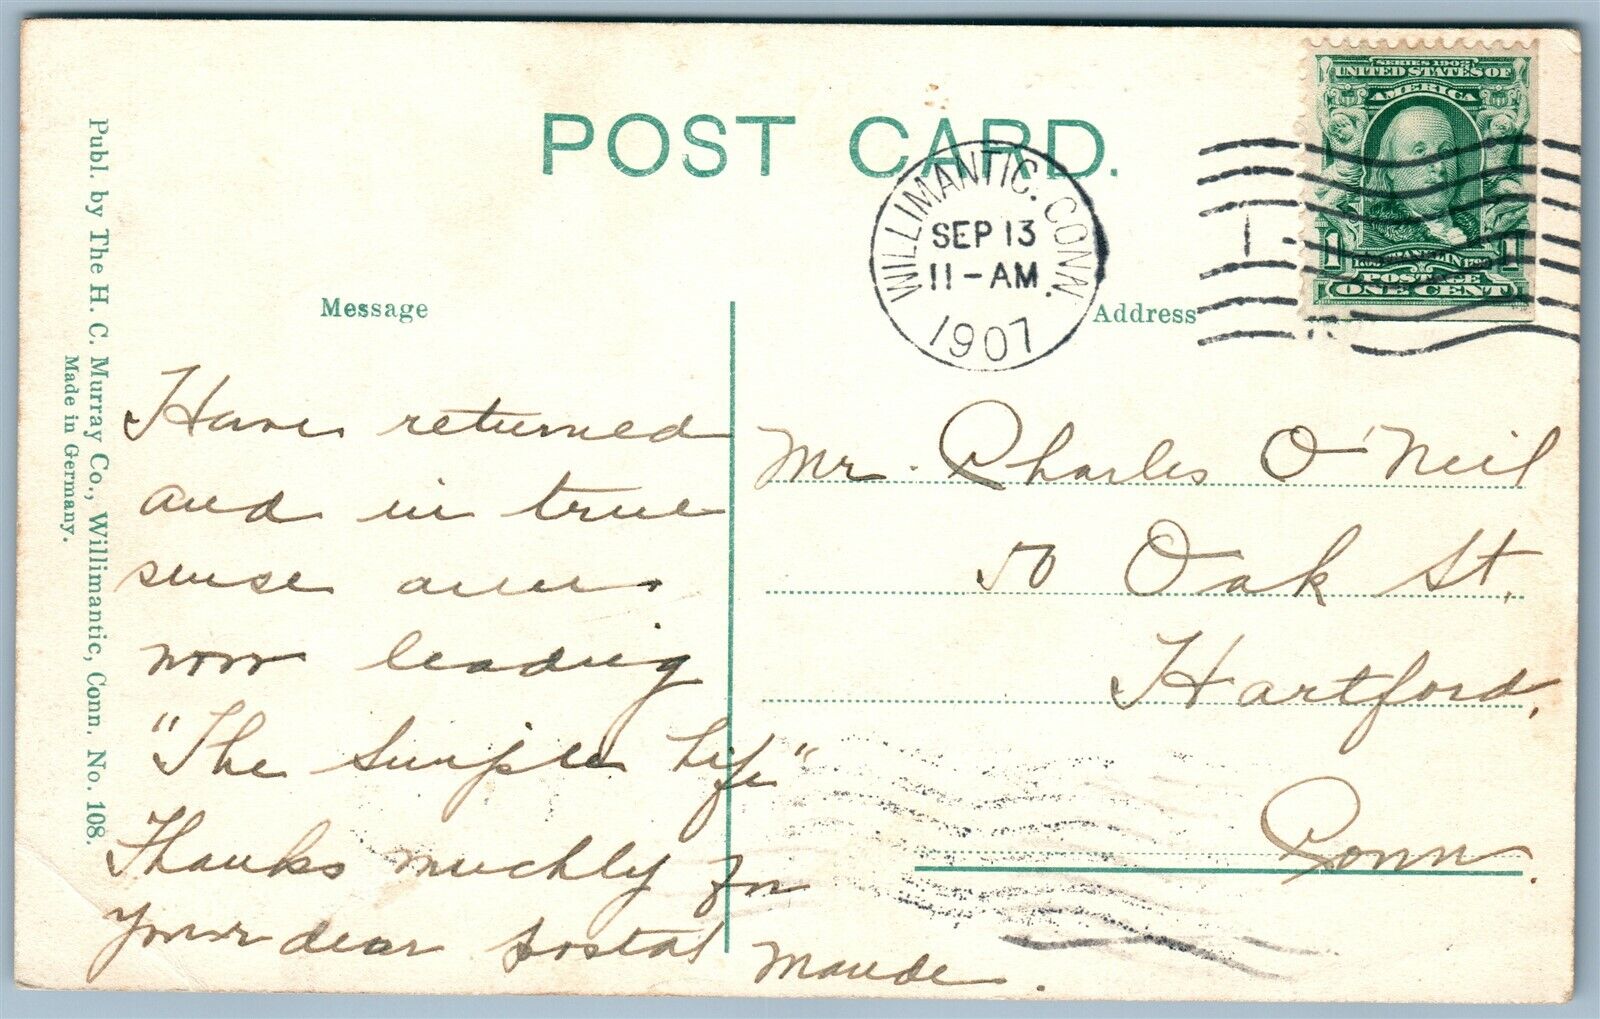 POST CARD.
SERIES 1902
UNITED STATES OF
AMERICA
1 1
FRANKLIN
POSTAGE
ONE CENT
WILLIMANTIC. CONN.
SEP 13
11-AM
1907
1
Message
Address
Publ. by The H. C. Murray Co., Willimantic, Conn. No. 108.
Made in Germany.
Have returned
and in true
sense am
now leading
"The Simple Life"
Thanks muchly for
your dear postal
Maude.
Mr. Charles O'Neil
50 Oak St.
Hartford,
Conn.